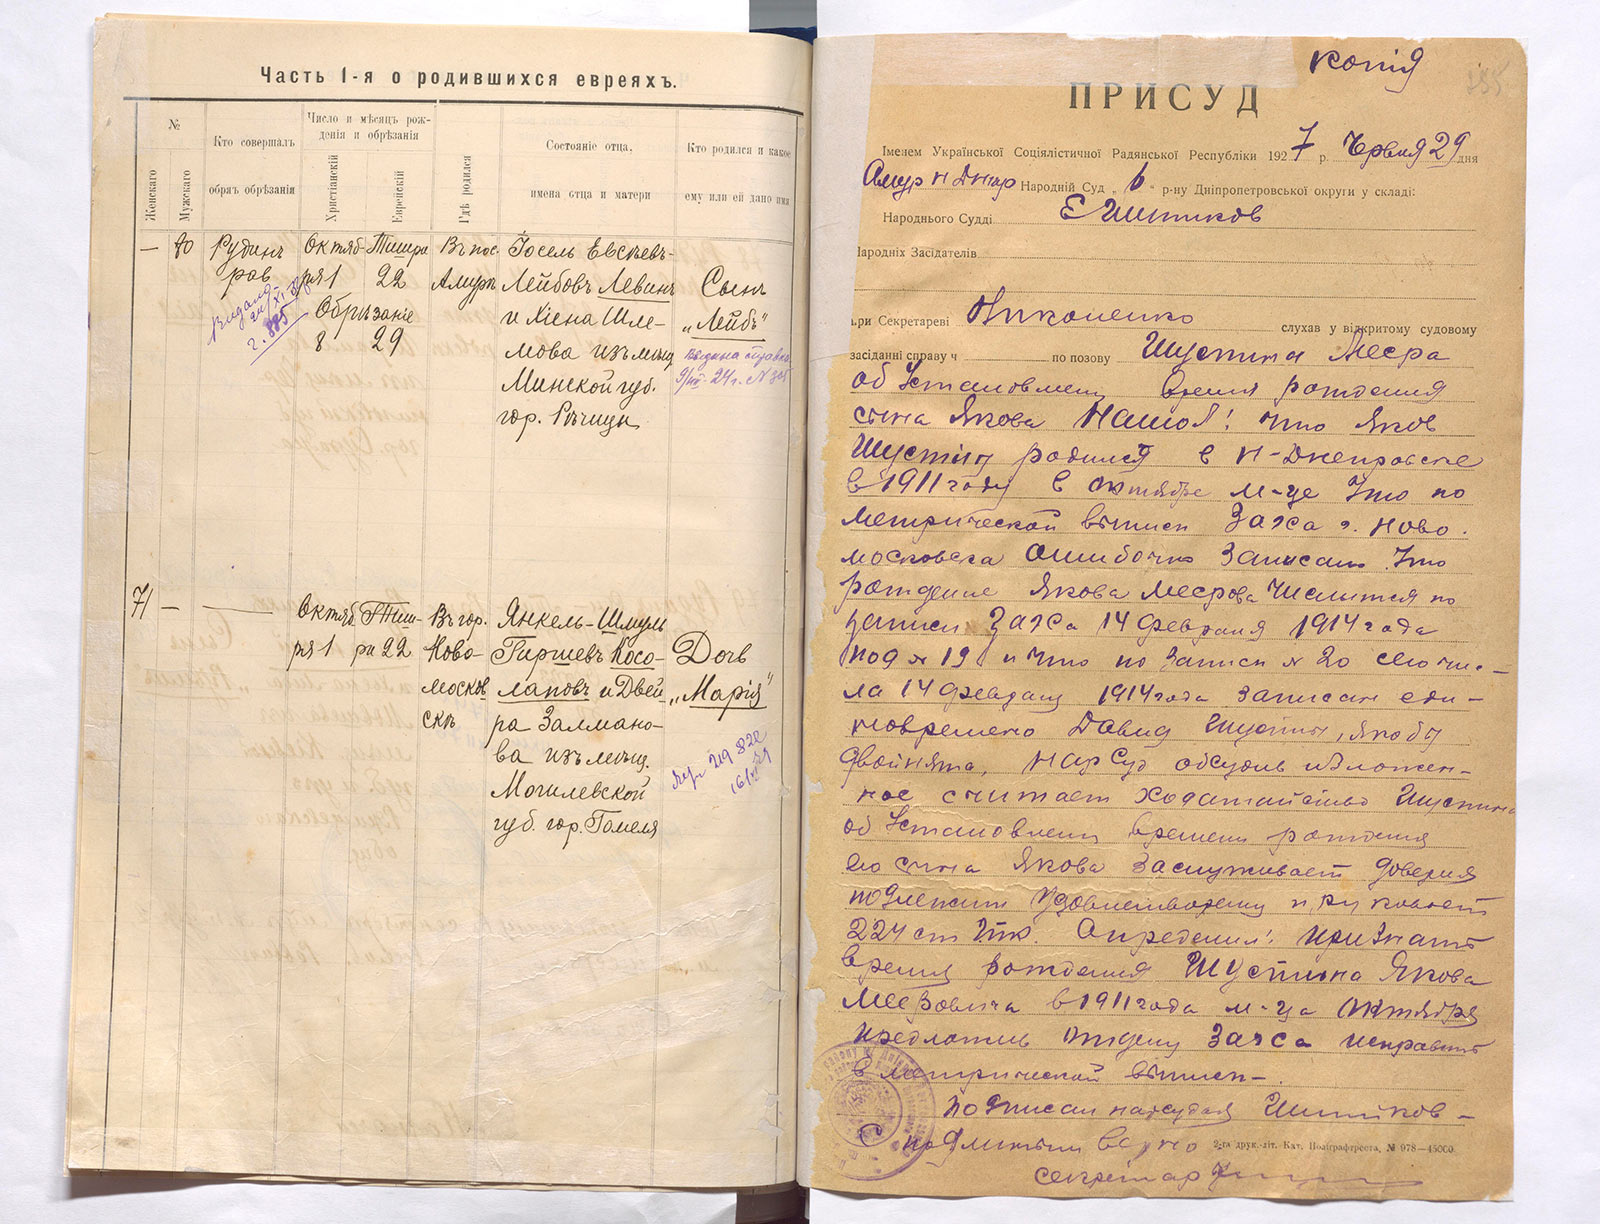 Часть 1-я о родившихся евреяхъ.
№
Женскаго
Мужскаго
Кто совершалъ
обрядъ обрѣзанія
Число и мѣсяцъ рож-
денія и обрѣзанія
Христіанскій
Еврейскій
Гдѣ родился
Состояніе отца,
имена отца и матери
Кто родился и какое
ему или ей дано имя
—
Рудин
Октяб-
ря 1
Тишри
22
Обрѣзаніе
8
29
Въ пос.
Амурѣ
Іосель Евсѣевъ-
Лейбовъ Левинъ
и Хіена Шле-
мова изъ мѣщ
Минской губ.
гор. Рѣчицы
Сынъ
„Лейбъ“
видана
885
9/VII-24 г. N
71
—
Октяб
ря 1
Тиш-
ри 22
Въ гор.
Ново-
москов
скѣ
Янкель-Шмуль
Гиршевъ Косо-
лаповъ и Двей-
ра Залмано-
ва изъ мѣщ.
Могилевской
губ. гор. Гомеля
Дочь
„Марія“
копія
ПРИСУД
Іменем Української Соціялістичної Радянської Республіки 1927 р. Червня 29 дня
Амур Н Днпр Народній Суд „6“ р-ну Дніпропетровської округи у складі:
Народнього Судді Е Шишков
Народніх Засідателів
при Секретареві Никоненко слухав у відкритому судовому
засіданні справу ч по позову Шустина Меера
об установлении время рождения
сына Якова Нашол: что Яков
Шустин родился в Н-Днепровске
в 1911 году в октябре м-це что по
метрической выписи Загса г. Ново
московска ошибочно записано что
рождение Якова Меерова числится по
записи Загса 14 февраля 1914 года
под № 19 и что по записи № 20 сего чис-
ла 14 февраля 1914 года записан еди-
новремено Давид Шустин, якобы
двойнята, НарСуд обсудив изложен-
ное считает ходатайство Шустина
об установлении времени рождения
его сына Якова заслуживает доверия
подлежит удовлетворению и руковод
224 ст ГПК. Определил: признать
время рождения Шустина Якова
Меэровича в 1911 года м-ца Октября
предложив отделу Загса исправить
в метрической выписи-
подписал нарсудья Шишков-
С подлинным верно
2-га друк.-літ. Кат. Поліграфтреста, № 978—15000
секретар